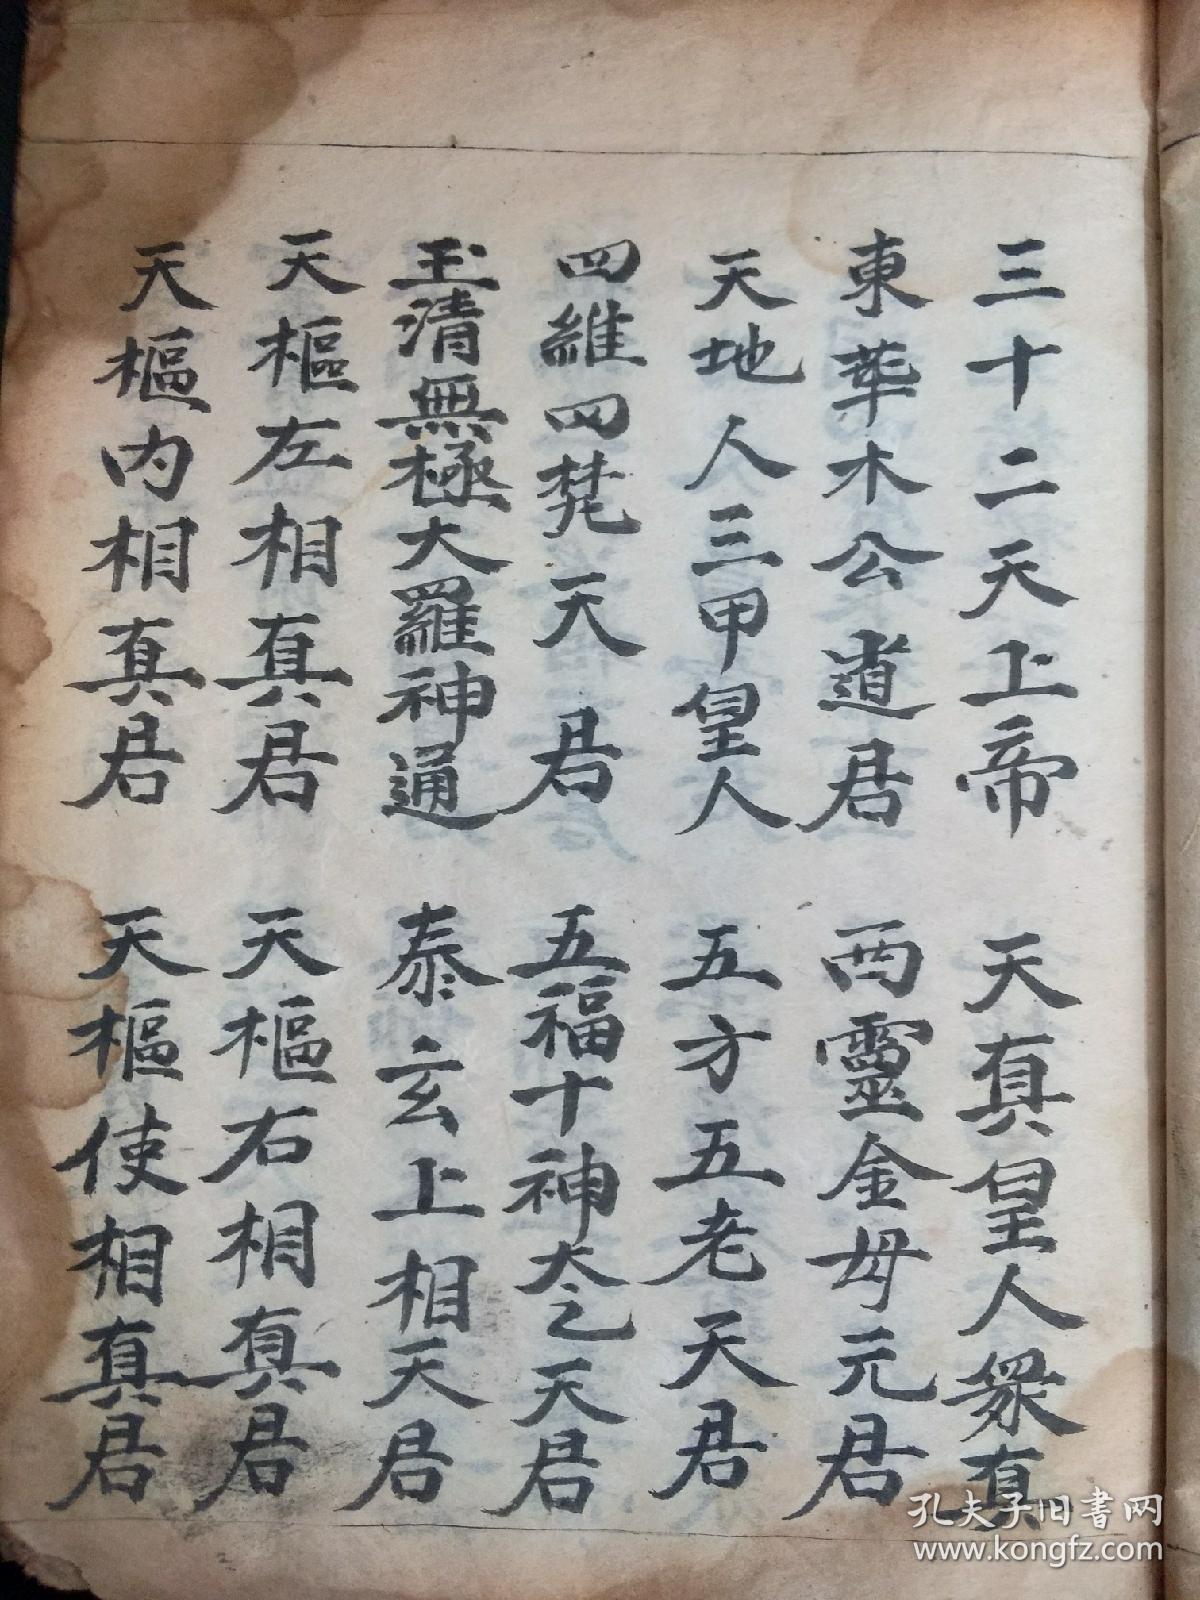 三十二天上帝
天真皇人衆真
東華木公道君
西靈金母元君
天地人三甲皇人
五方五老天君
四維四梵天君
五福十神太乙天君
玉清無極大羅神通
泰玄上相天君
天樞左相真君
天樞右相真君
天樞内相真君
天樞使相真君
孔夫子旧書网
www.kongfz.com